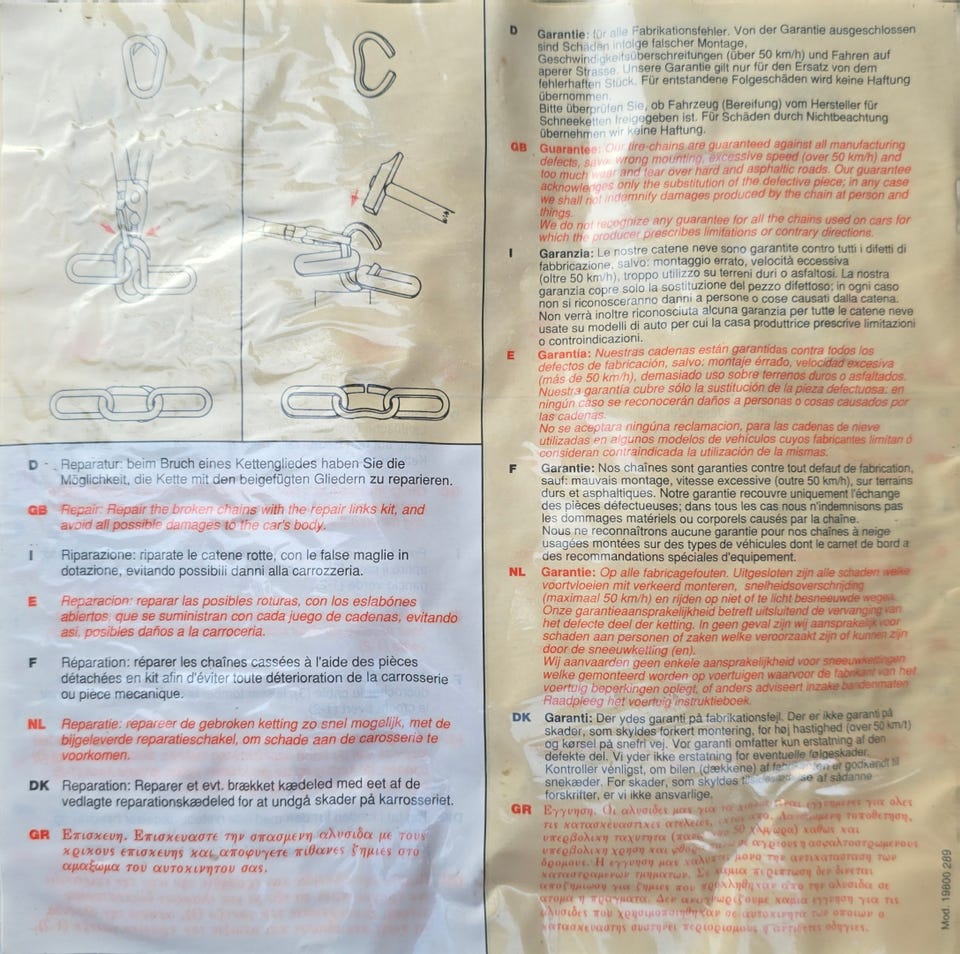 D - Reparatur: beim Bruch eines Kettengliedes haben Sie die
Möglichkeit, die Kette mit den beigefügten Gliedern zu reparieren.
GB Repair: Repair the broken chains with the repair links kit, and
avoid all possible damages to the car's body.
I Riparazione: riparate le catene rotte, con le false maglie in
dotazione, evitando possibili danni alla carrozzeria.
E Reparacion: reparar las posibles roturas, con los eslabónes
abiertos, que se suministran con cada juego de cadenas, evitando
asi, posibles daños a la carroceria.
F Réparation: réparer les chaînes cassées à l'aide des pièces
détachées en kit afin d'éviter toute déterioration de la carrosserie
ou pièce mecanique.
NL Reparatie: repareer de gebroken ketting zo snel mogelijk, met de
bijgeleverde reparatieschakel, om schade aan de carosserie te
voorkomen.
DK Reparation: Reparer et evt. brækket kædeled med eet af de
vedlagte reparationskædeled for at undgå skader på karrosseriet.
GR Επισκευη. Επισκευαστε την σπασμενη αλυσιδα με τους
κρικους επισκευης και αποφυγετε πιθανες ζημιες στο
αμαξωμα του αυτοκινητου σας.
D Garantie: für alle Fabrikationsfehler. Von der Garantie ausgeschlossen
sind Schäden infolge falscher Montage,
Geschwindigkeitsüberschreitungen (über 50 km/h) und Fahren auf
aperer Strasse. Unsere Garantie gilt nur für den Ersatz von dem
fehlerhaften Stück. Für entstandene Folgeschäden wird keine Haftung
übernommen.
Bitte überprüfen Sie, ob Fahrzeug (Bereifung) vom Hersteller für
Schneeketten freigegeben ist. Für Schäden durch Nichtbeachtung
übernehmen wir keine Haftung.
GB Guarantee: Our tire-chains are guaranteed against all manufacturing
defects, save wrong mounting, excessive speed (over 50 km/h) and
too much wear and tear over hard and asphaltic roads. Our guarantee
acknowledges only the substitution of the defective piece; in any case
we shall not indemnify damages produced by the chain at person and
things.
We do not recognize any guarantee for all the chains used on cars for
which the producer prescribes limitations or contrary directions.
I Garanzia: Le nostre catene neve sono garantite contro tutti i difetti di
fabbricazione, salvo: montaggio errato, velocità eccessiva
(oltre 50 km/h), troppo utilizzo su terreni duri o asfaltosi. La nostra
garanzia copre solo la sostituzione del pezzo difettoso; in ogni caso
non si riconosceranno danni a persone o cose causati dalla catena.
Non verrà inoltre riconosciuta alcuna garanzia per tutte le catene neve
usate su modelli di auto per cui la casa produttrice prescrive limitazioni
o controindicazioni.
E Garantía: Nuestras cadenas están garantidas contra todos los
defectos de fabricación, salvo: montaje érrado, velocidad excesiva
(más de 50 km/h), demasiado uso sobre terrenos duros o asfaltados.
Nuestra garantía cubre sólo la sustitución de la pieza defectuosa: en
ningún caso se reconocerán daños a personas o cosas causados por
las cadenas.
No se aceptara ningúna reclamacion, para las cadenas de nieve
utilizadas en algunos modelos de vehículos cuyos fabricantes limitan ó
consideran contraindicada la utilización de la mismas.
F Garantie: Nos chaînes sont garanties contre tout defaut de fabrication,
sauf: mauvais montage, vitesse excessive (outre 50 km/h), sur terrains
durs et asphaltiques. Notre garantie recouvre uniquement l'échange
des pièces défectueuses; dans tous les cas nous n'indemnisons pas
les dommages matériels ou corporels causés par la chaîne.
Nous ne reconnaîtrons aucune garantie pour nos chaînes à neige
usagées montées sur des types de véhicules dont le carnet de bord a
des recommandations spéciales d'équipement.
NL Garantie: Op alle fabricagefouten. Uitgesloten zijn alle schaden welke
voortvloeien met verkeerd monteren, snelheidsoverschrijding
(maximaal 50 km/h) en rijden op niet of te licht besneeuwde wegen.
Onze garantieaansprakelijkheid betreft uitsluitend de vervanging van
het defecte deel der ketting. In geen geval zijn wij aansprakelijk voor
schaden aan personen of zaken welke veroorzaakt zijn of kunnen zijn
door de sneeuwketting (en).
Wij aanvaarden geen enkele aansprakelijkheid voor sneeuwkettingen
welke gemonteerd worden op voertuigen waarvoor de fabrikant van het
voertuig beperkingen oplegt, of anders adviseert inzake bandenmaten
Raadpleeg het voertuig instruktieboek.
DK Garanti: Der ydes garanti på fabrikationsfejl. Der er ikke garanti på
skader, som skyldes forkert montering, for høj hastighed (over 50 km/t)
og kørsel på snefri vej. Vor garanti omfatter kun erstatning af den
defekte del. Vi yder ikke erstatning for eventuelle følgeskader.
Kontroller venligst, om bilen (dækkene) af er godkendt til
snekæder. For skader, som skyldes af sådanne
forskrifter, er vi ikke ansvarlige.
GR Εγγυηση. Οι αλυσιδες μας για τα ειναι εγγυημενες για ολες
τις κατασκευαστικες ατελειες, εκτος τοποθετηση,
υπερβολικη ταχυτητα 50 καθως και
υπερβολικη χρηση και σε αγριους η ασφαλτοστρωμενους
δρομους. Η εγγυηση μας μονο την αντικατασταση των
καταστραμενων τμηματων. Σε καμια περιπτωση δεν δινεται
αποζημιωση για ζημιες που απο την αλυσιδα σε
ατομα η πραγματα. Δεν αναγνωριζουμε καμια εγγυηση για τις
αλυσιδες που χρησιμοποιηθηκαν σε αυτοκινητα των οποιων ο
κατασκευαστης συστηνει περιορισμους η αντιθετες οδηγιες.
Mod. 19800 289